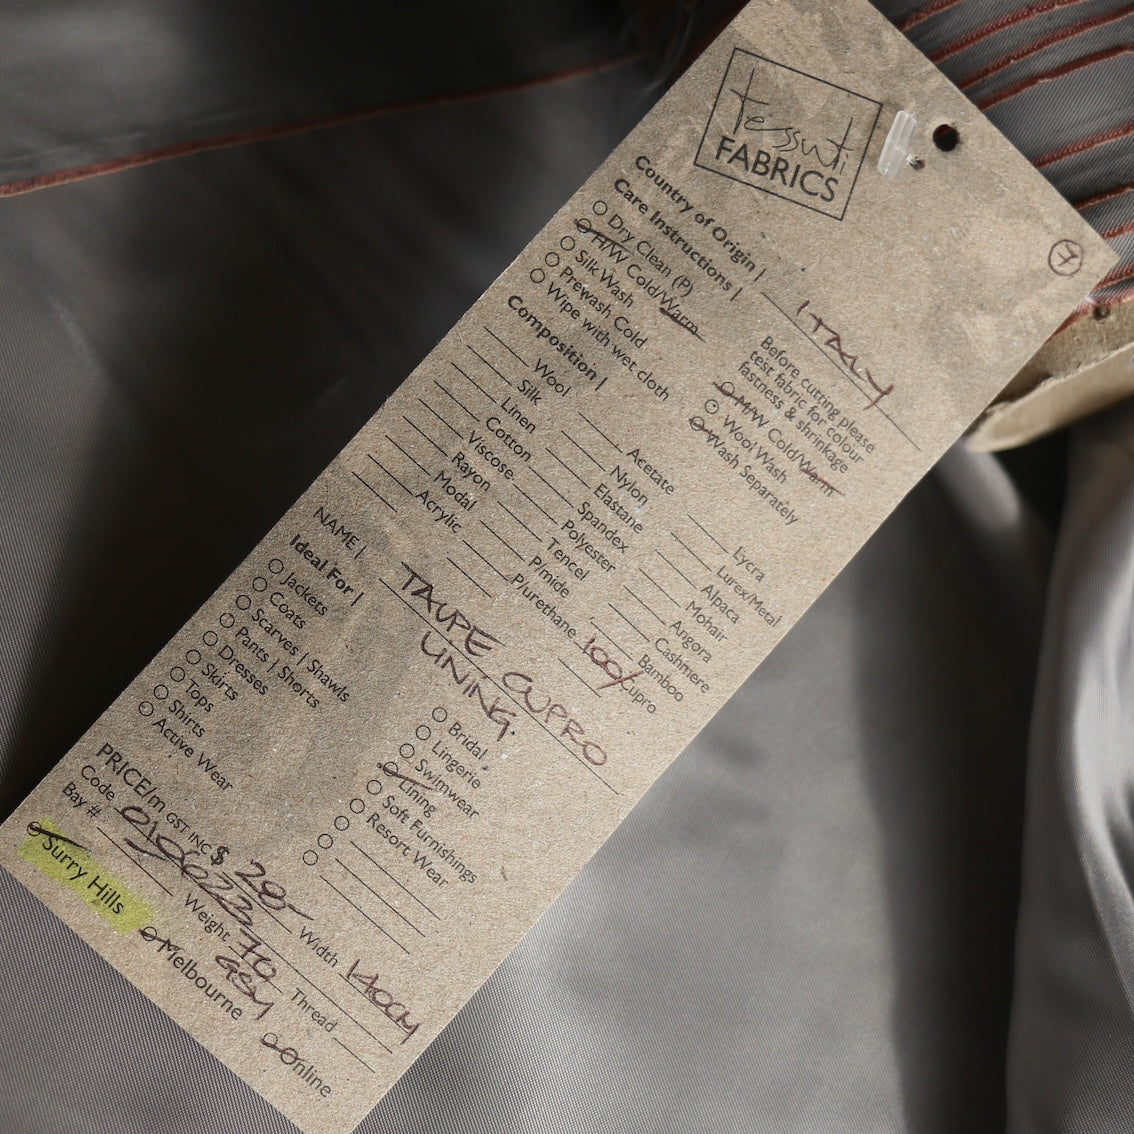 tessuti
FABRICS
7
Country of Origin | ITALY
Care Instructions |
Dry Clean (P)
H/W Cold/Warm
Silk Wash
Prewash Cold
Wipe with wet cloth
Before cutting please
test fabric for colour
fastness & shrinkage
M/W Cold/Warm
Wool Wash
Wash Separately
Composition |
Wool
Silk
Linen
Cotton
Viscose
Rayon
Modal
Acrylic
Acetate
Nylon
Elastane
Spandex
Polyester
Tencel
P/mide
P/urethane
Lycra
Lurex/Metal
Alpaca
Mohair
Angora
Cashmere
Bamboo
100% Cupro
NAME | TAUPE CUPRO
LINING.
Ideal For |
Jackets
Coats
Scarves | Shawls
Pants | Shorts
Dresses
Skirts
Tops
Shirts
Active Wear
Bridal
Lingerie
Swimwear
Lining
Soft Furnishings
Resort Wear
PRICE/m GST INC $ 28- Width 140CM
Code 0100223 Weight 70 GSM Thread
Bay #
Surry Hills Melbourne Online